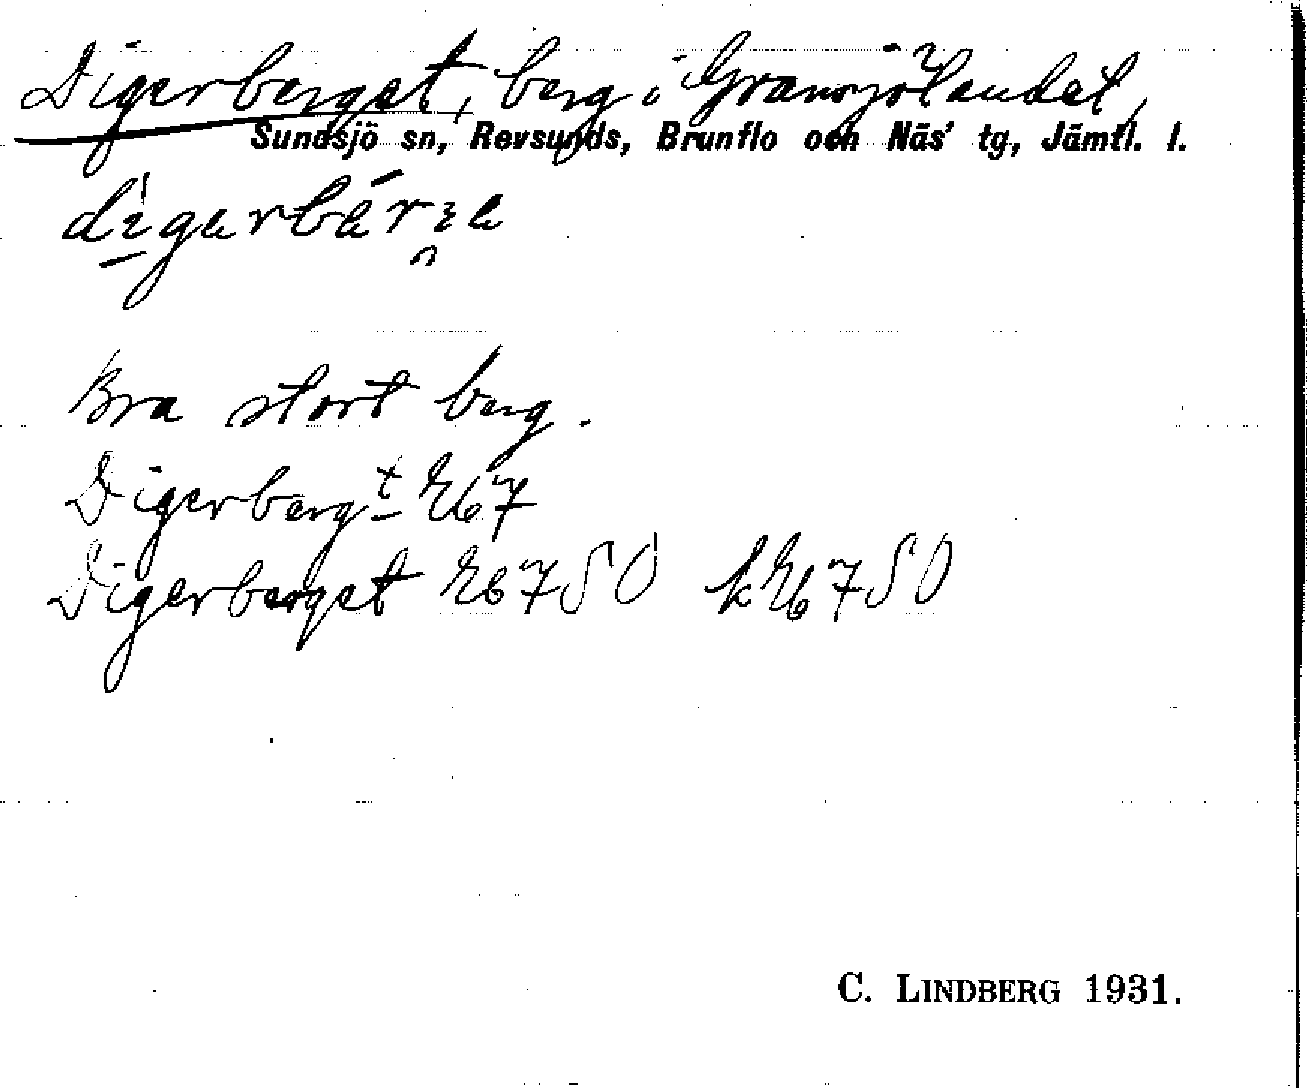 Digerberget, berg i Gransjölandet,
Sundsjö sn, Revsunds, Brunflo och Näs' tg, Jämtl. l.
Bra stort berg.
Digerbergt E67
Digerberget E6750 kE6750
C. LINDBERG 1931.